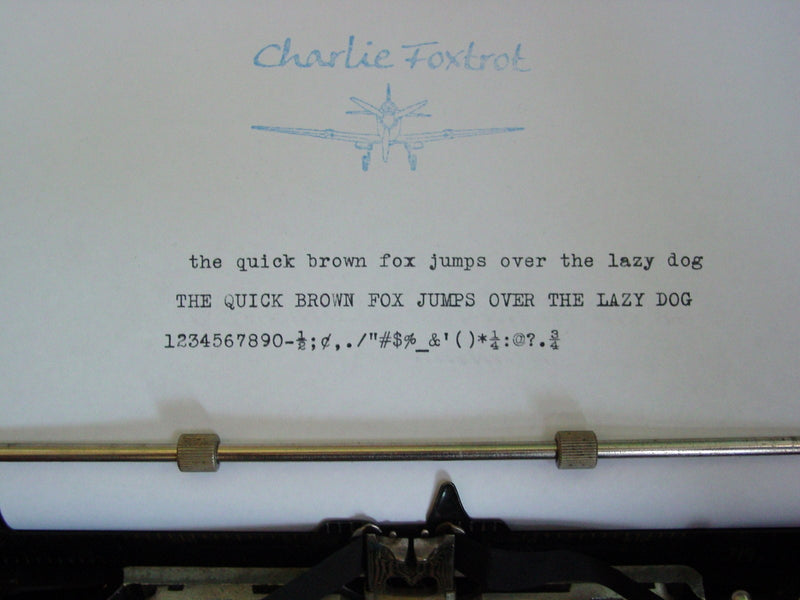 Charlie Foxtrot
the quick brown fox jumps over the lazy dog
THE QUICK BROWN FOX JUMPS OVER THE LAZY DOG
1234567890-½;¢,./"#$%_&'()*¼:@?.¾